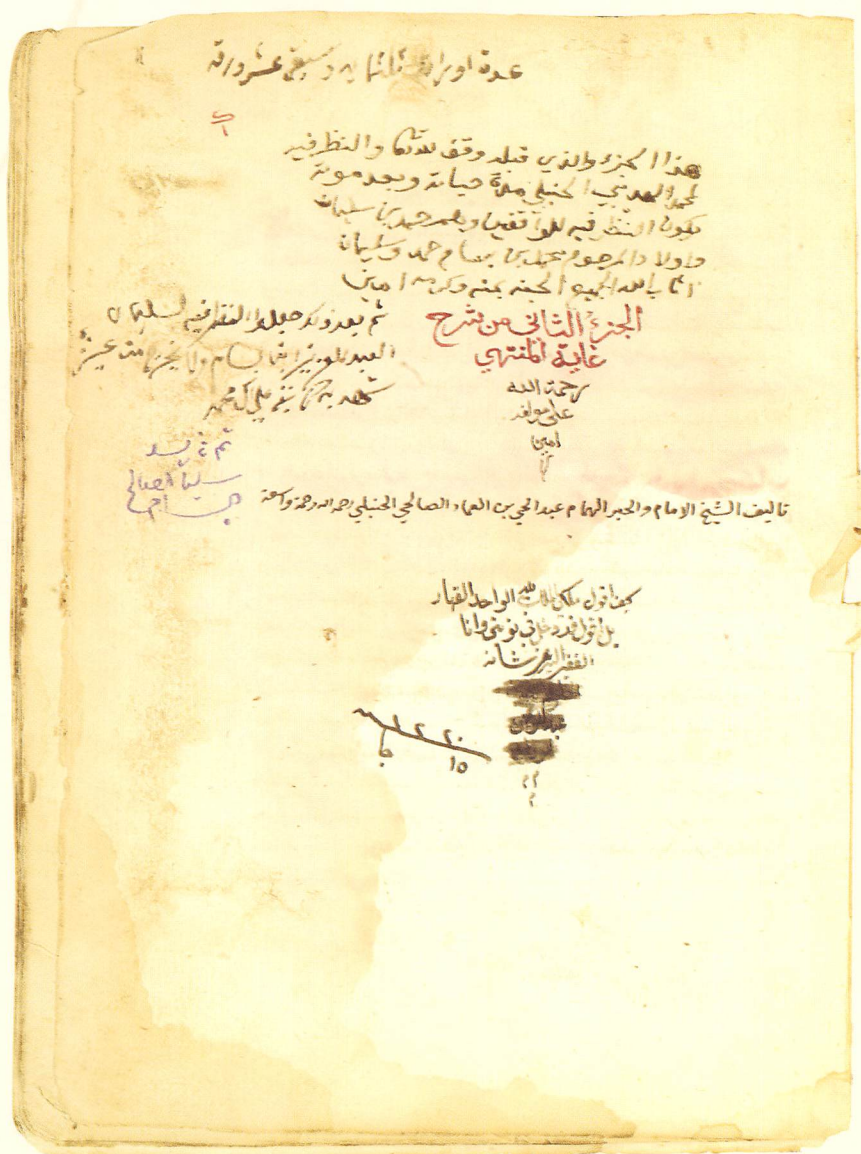 عدة اوراقه ثلثمايه وسبعة عشر ورقه
هذا الجزء والذي قبله وقف لله تعالى والنظر فيه
لمحمد الهديبي الحنبلي مدة حياته وبعد موته
يكون النظر فيه للواقفين وهم حمد بن سليمان
واولاد المرحوم محمد بن بسام حمد وسليمان
اثابهم الله الجميع الجنه بمنه وكرمه امين
ثم بعد ذلك جعلوا النظر فيه لسليمان
العبد العزيز البسام من عنيزة
شهد به علي ال محمد
الجزء الثاني من شرح
غاية المنتهى
رحمة الله
على مولفه
امين
تاليف الشيخ الامام والحبر الهمام عبد الحي بن العماد الصالحي الحنبلي رحمه الله رحمة واسعة
كيف اقول ملكي والملك لله الواحد القهار
بل اقول قد دخل في نوبتي وانا
الفقير اليه عز شانه
١٢٢٠
١٥